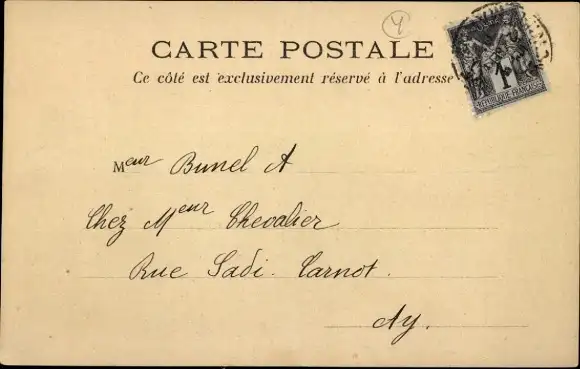 Y
CARTE POSTALE
Ce côté est exclusivement réservé à l'adresse
1
REPUBLIQUE FRANÇAISE
Meur Bunel A
Chez Meur Chevalier
Rue Sadi. Carnot.
Ay.